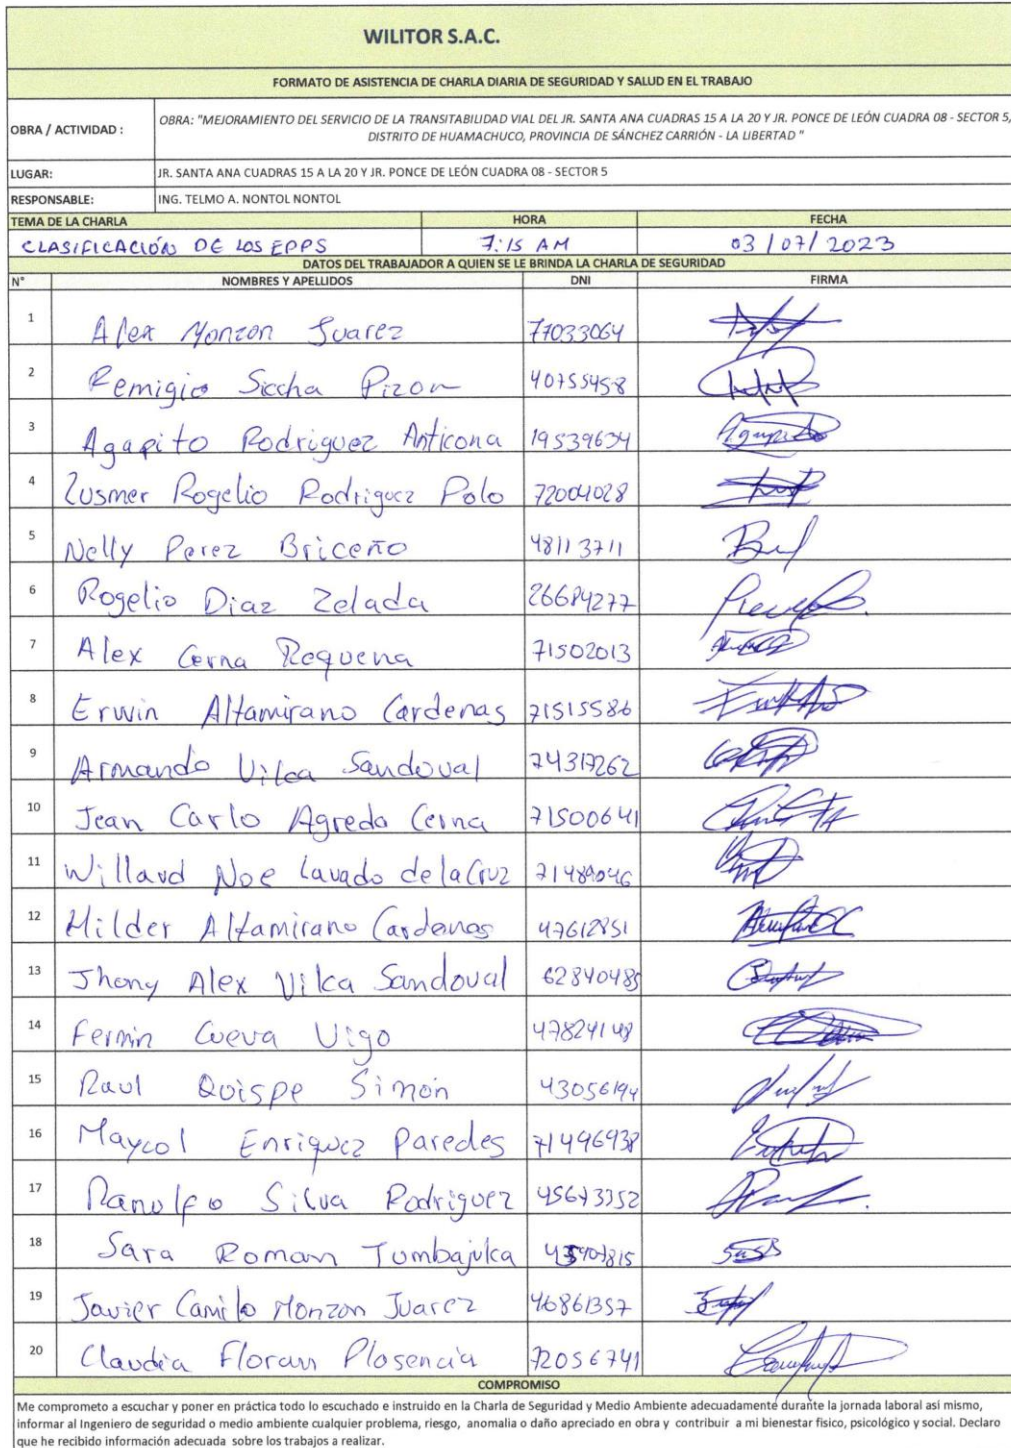 WILITOR S.A.C.
FORMATO DE ASISTENCIA DE CHARLA DIARIA DE SEGURIDAD Y SALUD EN EL TRABAJO
OBRA / ACTIVIDAD : OBRA: "MEJORAMIENTO DEL SERVICIO DE LA TRANSITABILIDAD VIAL DEL JR. SANTA ANA CUADRAS 15 A LA 20 Y JR. PONCE DE LEÓN CUADRA 08 - SECTOR 5,
DISTRITO DE HUAMACHUCO, PROVINCIA DE SÁNCHEZ CARRIÓN - LA LIBERTAD "
LUGAR: JR. SANTA ANA CUADRAS 15 A LA 20 Y JR. PONCE DE LEÓN CUADRA 08 - SECTOR 5
RESPONSABLE: ING. TELMO A. NONTOL NONTOL
TEMA DE LA CHARLA HORA FECHA
CLASIFICACIÓN DE LOS EPPS 7:15 AM 03/07/2023
DATOS DEL TRABAJADOR A QUIEN SE LE BRINDA LA CHARLA DE SEGURIDAD
N° NOMBRES Y APELLIDOS DNI FIRMA
1 Alex Monzon Juarez 77033064
2 Remigio Siccha Pizon 40755458
3 Agapito Rodriguez Anticona 19539634
4 Zusmer Rogelio Rodriguez Polo 72004028
5 Nelly Perez Briceño 48113711
6 Rogelio Diaz Zelada 26684277
7 Alex Cerna Requena 71502013
8 Erwin Altamirano Cardenas 71515586
9 Armando Vilca Sandoval 74317262
10 Jean Carlo Agreda Cerna 71500641
11 Willard Noe Lavado de la Cruz 71489046
12 Hilder Altamirano Cardenas 47612851
13 Jhony Alex Vilca Sandoval 62840485
14 Fermin Cueva Vigo 47824148
15 Raul Quispe Simon 43056194
16 Maycol Enriquez Paredes 71496938
17 Ranulfo Silva Rodriguez 45673352
18 Sara Roman Tumbajulca
19 Javier Camilo Monzon Juarez 46861357
20 Claudia Florian Plasencia 72056741
COMPROMISO
Me comprometo a escuchar y poner en práctica todo lo escuchado e instruido en la Charla de Seguridad y Medio Ambiente adecuadamente durante la jornada laboral asi mismo,
informar al Ingeniero de seguridad o medio ambiente cualquier problema, riesgo, anomalia o daño apreciado en obra y contribuir a mi bienestar fisico, psicológico y social. Declaro
que he recibido información adecuada sobre los trabajos a realizar.